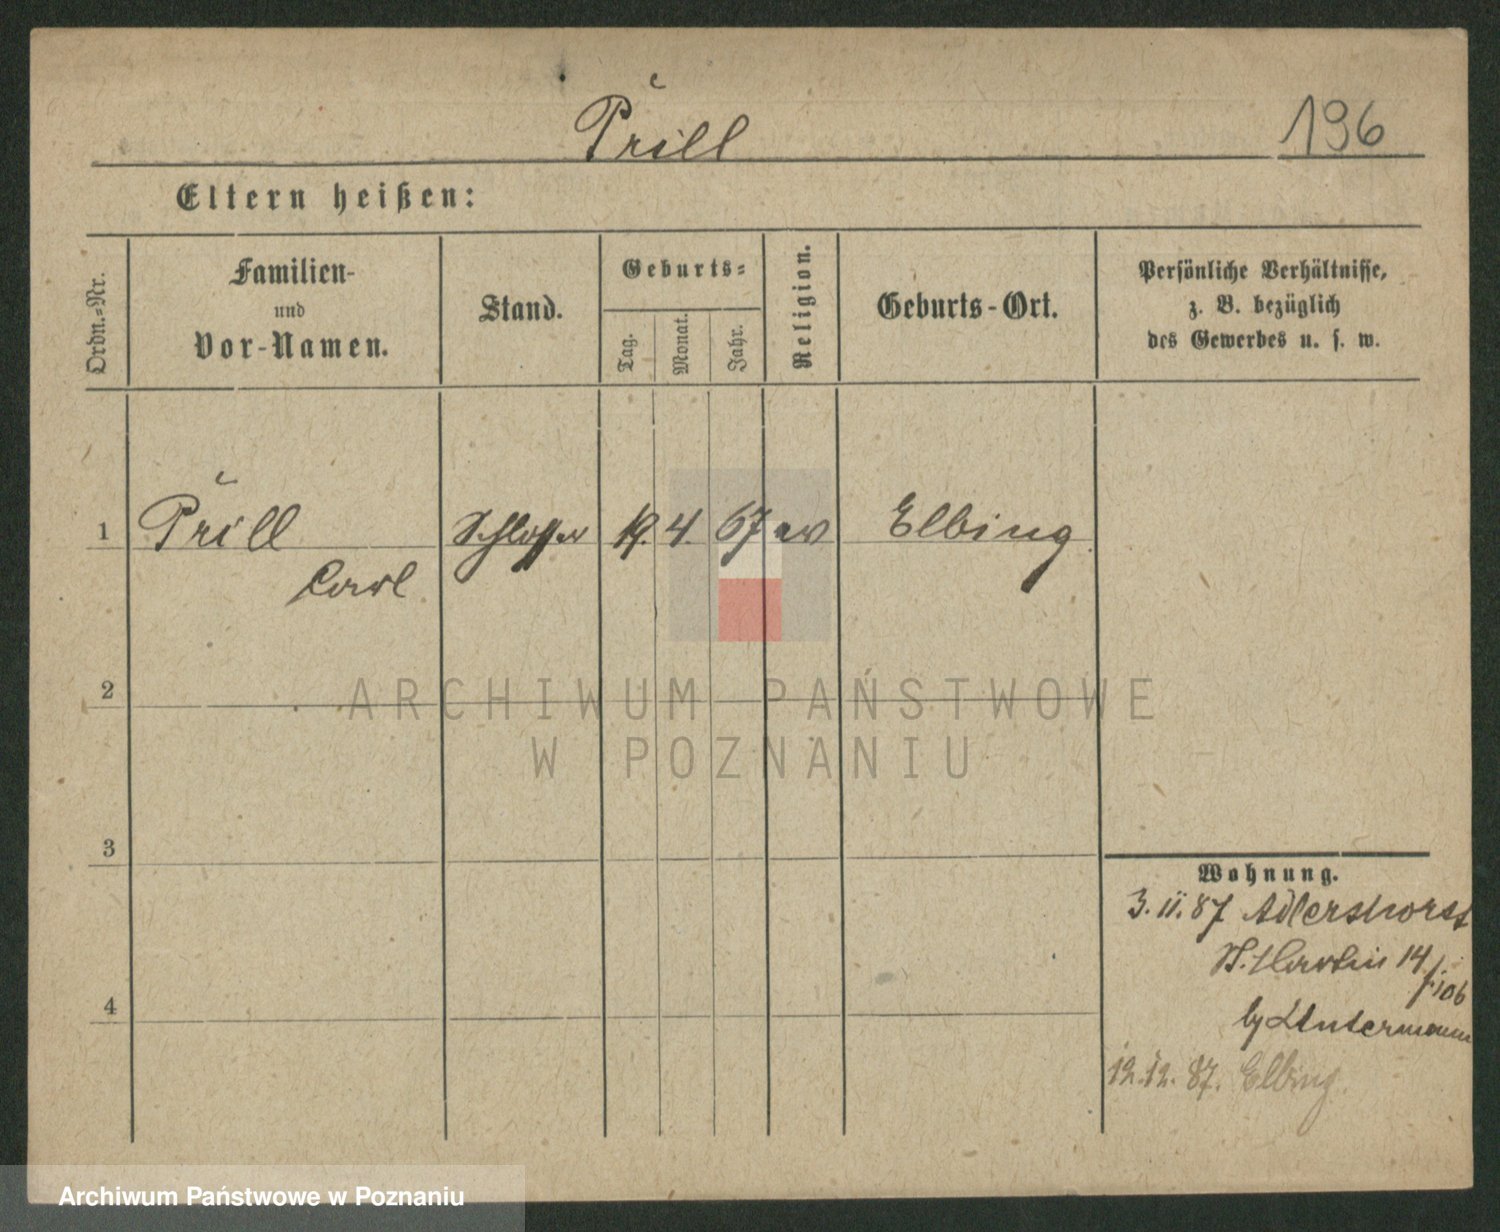 Prill
196
Eltern heißen:
Ordn.-Nr.
Familien-
und
Vor-Namen.
Stand.
Geburts-
Tag.
Monat.
Jahr.
Religion.
Geburts-Ort.
Persönliche Verhältnisse,
z. B. bezüglich
des Gewerbes u. s. w.
1 Prill Schlosser 19. 4. 67 ev Elbing
Carl
2
ARCHIWUM PAŃSTWOWE
W POZNANIU
3
Wohnung.
3. 11. 87 Adlershorst
St. Martin 14
4
Untermann
12. 12. 87. Elbing
Archiwum Państwowe w Poznaniu